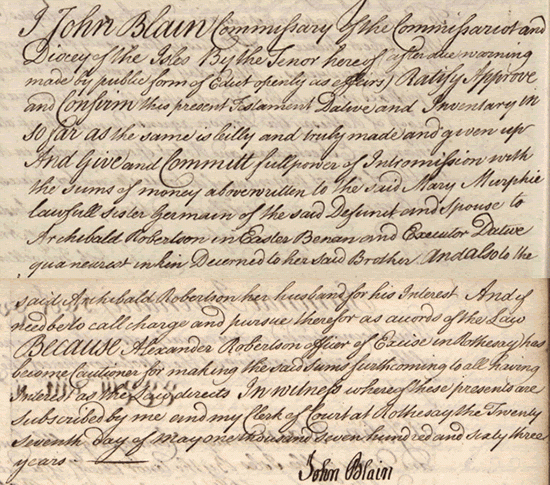 I John Blain Commissary of the Commissariot and
Diocey of the Isles By the Tenor hereof (after due warning
made by public form of Edict openly as effeirs) Ratify Approve
and Confirm this present Testament Dative and Inventary in
so far as the same is leilly and truly made and given up
And Give and Committ full power of Intromission with
the sums of money abovewritten to the said Mary Murphie
lawfull sister German of the said Defunct and Spouse to
Archibald Robertson in Easter Benan and Executor Dative
qua nearest in kin Decerned to her said Brother And also to the
said Archibald Robertson her husband for his Interest And if
need be to call charge and pursue therefor as accords of the Law
Because Alexander Robertson officer of Excise in Rothesay has
become Cautioner for making the said Sums furthcoming to all having
Interest as the Law directs In witness whereof these presents are
subscribed by me and my Clerk of Court at Rothesay the Twenty
seventh day of May one thousand seven hundred and sixty three
years
John Blain